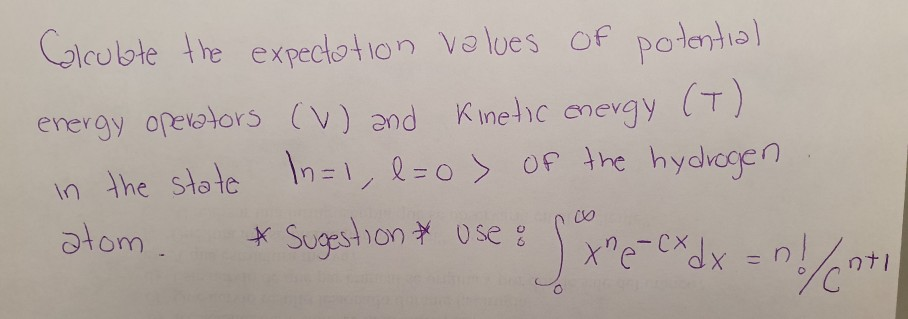 Calculate the expectation values of potential
energy operators (V) and Kinetic energy (T)
in the state |n=1, l=0 > of the hydrogen
atom. * Sugestion * use : ∫₀^∞ xⁿe^{-cx}dx = n!/cⁿ⁺¹